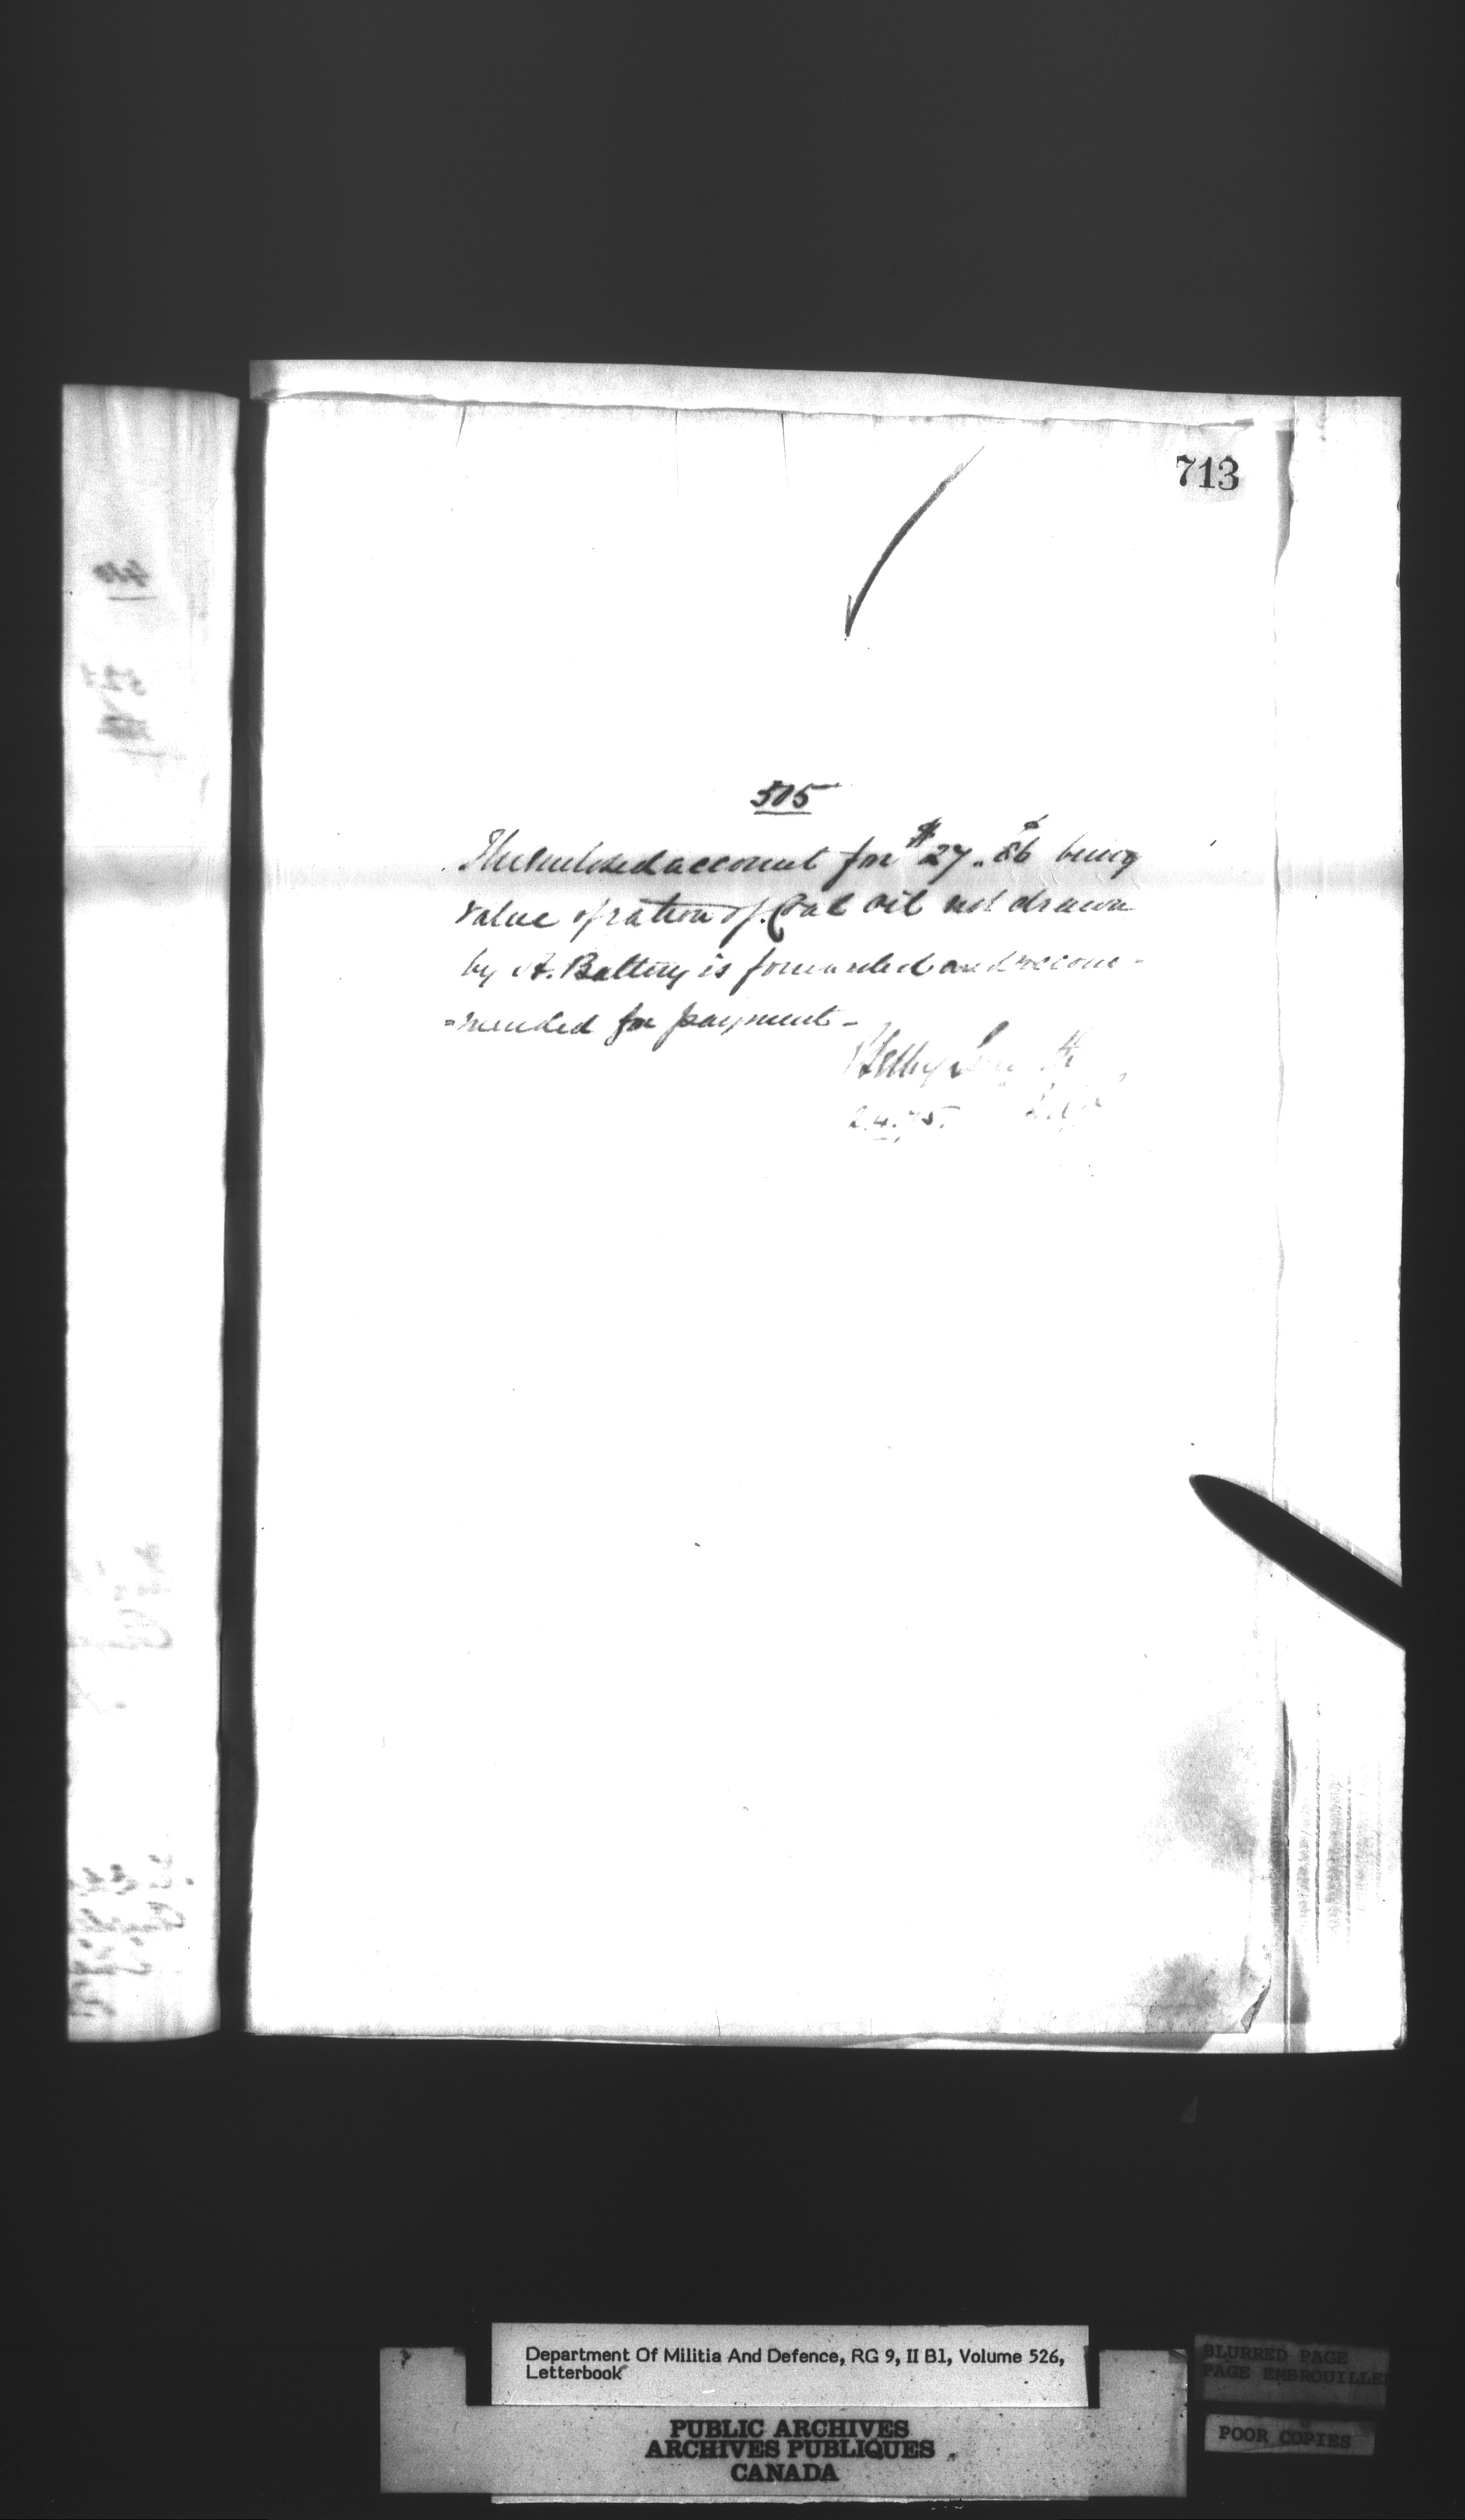 713
505
The enclosed account for $27.86 being
value of ration of Coal Oil not drawn
by A. Battery is forwarded and recom-
=mended for payment-
Smith
2.4.75.
Department Of Militia And Defence, RG 9, II B1, Volume 526,
Letterbook
PUBLIC ARCHIVES
ARCHIVES PUBLIQUES
CANADA
BLURRED PAGE
PAGE EMBROUILLE
POOR COPIES